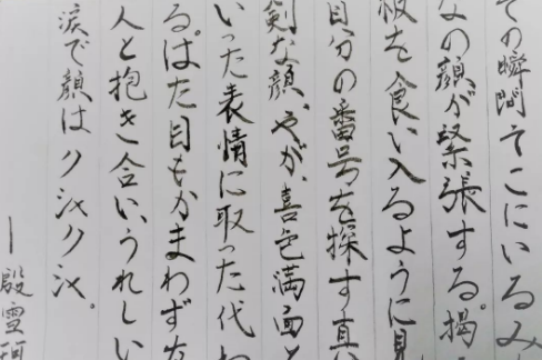 その瞬間そこにいるみ
なの顔が緊張する。掲
板を食い入るように見
自分の番号を探す真
剣な顔、やが、喜色満面と
いった表情に取った代わ
る。はた目もかまわず友
人と抱き合い、うれしい
涙で顔はクシャクシャ。
— 殷雪